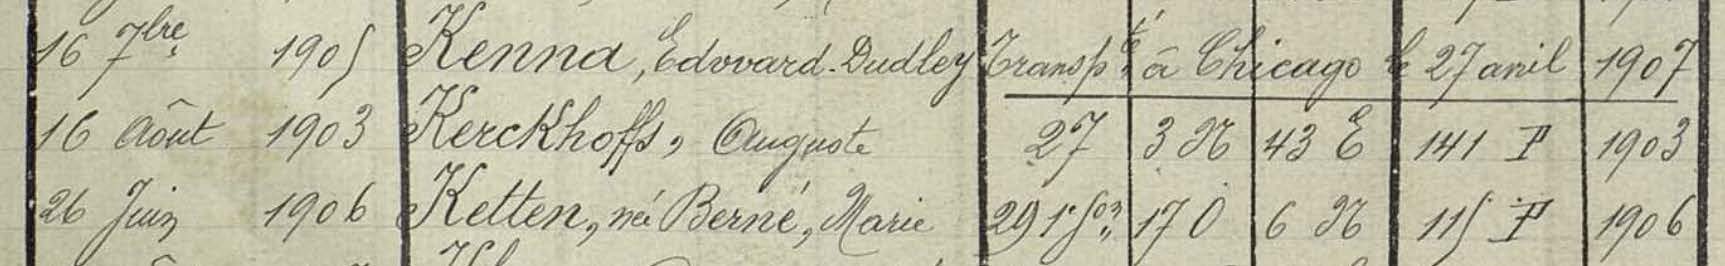 16 7bre 1905 Kenna, Edouard-Dudley Transpté à Chicago le 27 avril 1907
16 Août 1903 Kerckhoffs, Auguste 27 3 N 43 E 141 P 1903
26 Juin 1906 Ketten, née Berné, Marie 29 1e Son 17 O 6 N 115 P 1906